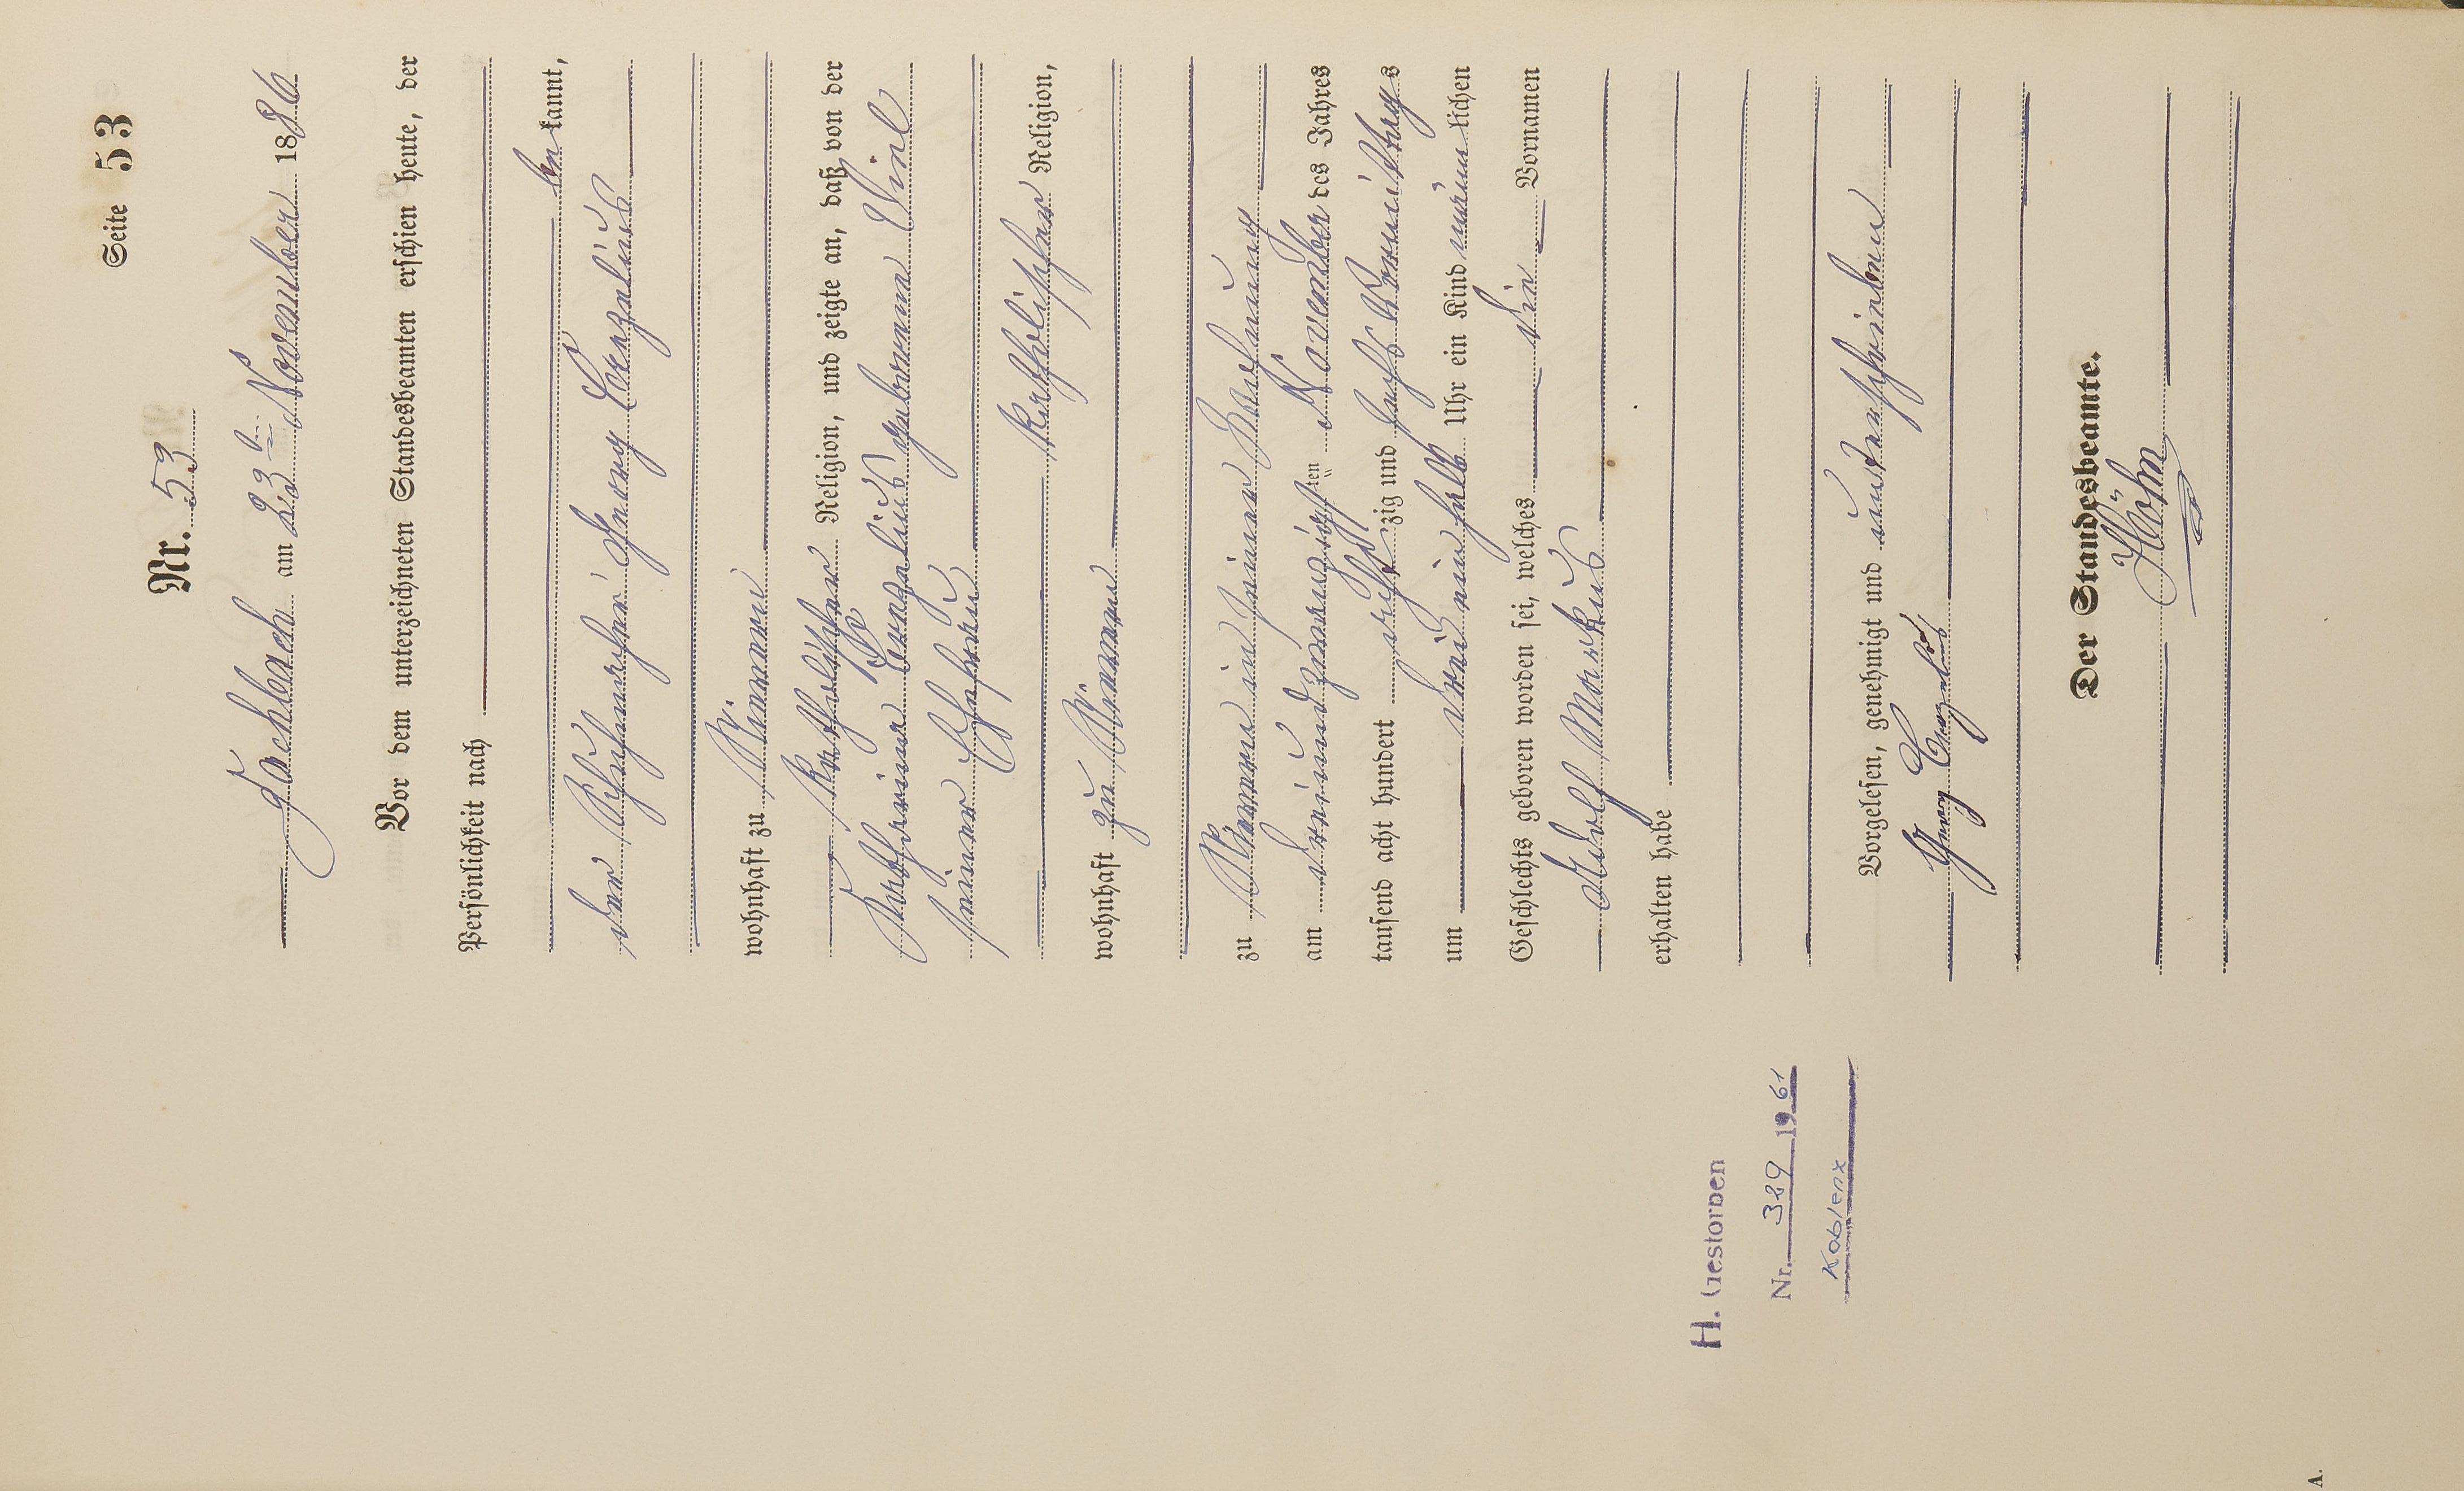 Seite 53
Nr. 53
Fachbach am 23ⁿ November 1886
Vor dem unterzeichneten Standesbeamten erschien heute, der
Persönlichkeit nach
be kannt,
der Schuhmacher Georg
wohnhaft zu Nievern
katholischer Religion, und zeigte an, daß von der
Katharina geborenen
seiner Ehefrau
katholischer Religion,
wohnhaft zu Nievern
zu Nievern in seiner Wohnung
am dreiundzwanzigsten November des Jahres
tausend acht hundert achtzig und sechs Vormittags
um drei ein halb Uhr ein Kind männlichen
Geschlechts geboren worden sei, welches die Vornamen
Adolf Markus
erhalten habe
Vorgelesen, genehmigt und unterschrieben
Georg
Der Standesbeamte.
Höhn
H. Gestorben
Nr. 389 1961
Koblenz
A.